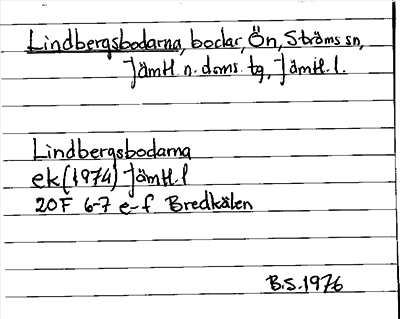 Lindbergsbodarna, bodar, Ön, Ströms sn,
Jämtl. n. doms. tg, Jämtl. l.
Lindbergsbodarna
ek (1974) Jämtl. l
20F 6-7 e-f Bredkälen
B.S. 1976